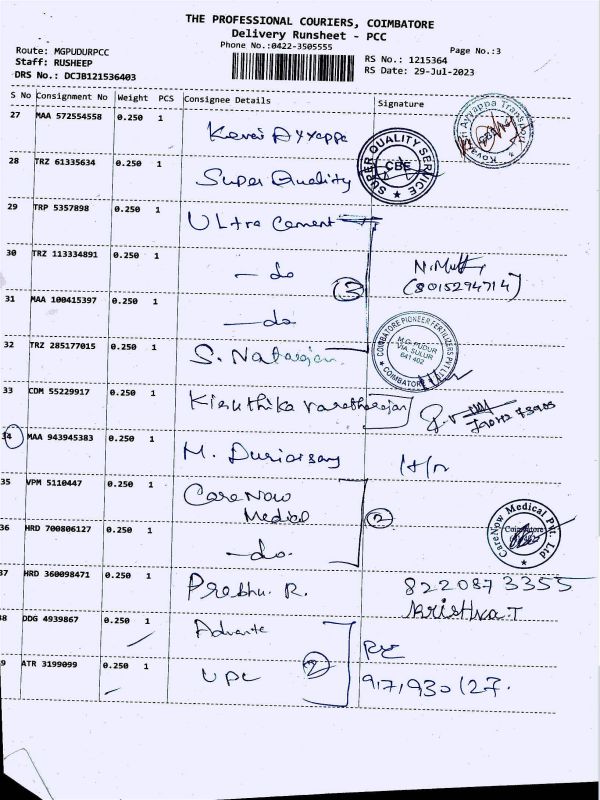 THE PROFESSIONAL COURIERS, COIMBATORE
Delivery Runsheet - PCC
Phone No.:0422-3505555
Page No.:3
Route: MGPUDURPCC
Staff: RUSHEEP
DRS No.: DCJB121536403
RS No.: 1215364
RS Date: 29-Jul-2023
S No Consignment No Weight PCS Consignee Details Signature
27 MAA 572554558 0.250 1 Kovai Ayyappa
28 TRZ 61335634 0.250 1 Super Quality
SUPER QUALITY SERVICE CBE
29 TRP 5357898 0.250 1 ULtra Cement
30 TRZ 113334891 0.250 1 - do
3
(8015294714)
31 MAA 100415397 0.250 1 - do
32 TRZ 285177015 0.250 1 S. Natarajan
COIMBATORE PIONEER FERTILIZERS
M.G. PUDUR
VIA. SULUR
641 402
COIMBATORE
33 CDM 55229917 0.250 1 Kiruthika varatharajan
34 MAA 943945383 0.250 1 M. Duriarsamy
35 VPM 5110447 0.250 1 CareNow
Medical
2
CareNow Medical Pvt. Ltd
Coimbatore
36 HRD 700806127 0.250 1 - do.
37 HRD 360098471 0.250 1 Prabhu. R.
8220873355
Krishna.T
38 DDG 4939867 0.250 1 Advante
39 ATR 3199099 0.250 1 UPC
2